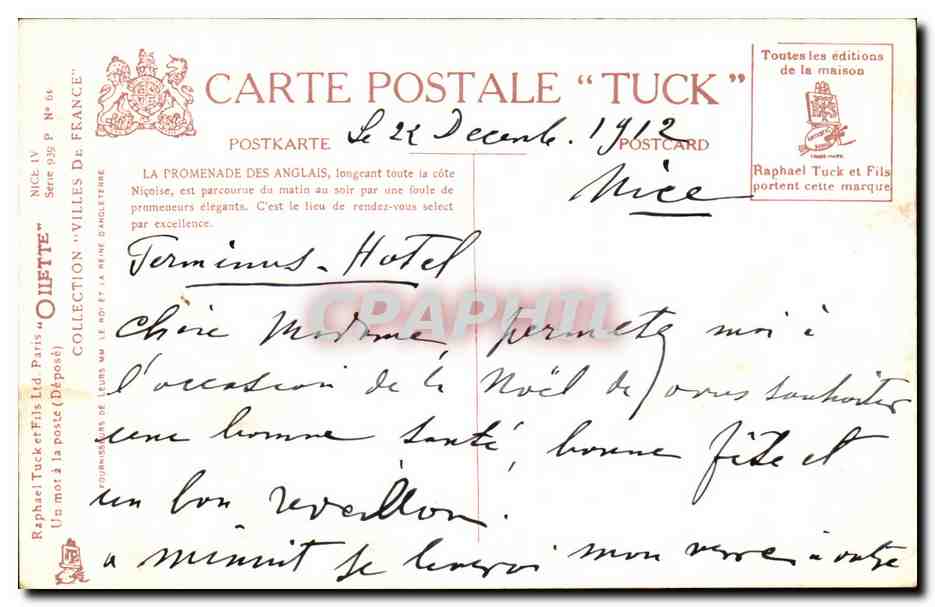 CARTE POSTALE “TUCK”
POSTKARTE
POSTCARD
Le 22 Decembe. 1912
Nice
Toutes les éditions
de la maison
Raphael Tuck et Fils
portent cette marque
LA PROMENADE DES ANGLAIS, longeant toute la côte
Niçoise, est parcourue du matin au soir par une foule de
promeneurs élégants. C'est le lieu de rendez-vous select
par excellence.
Terminus - Hotel
Chère Madame, permetez moi à
l'occasion de la Noël de vous souhaiter
une bonne santé, bonne fête et
un bon reveillon.
a minuit je leverai mon verre à votre
Raphael Tuck et Fils Ltd Paris “OILETTE”
Un mot à la poste (Déposé)
NICE IV
Série 939 P Nº 61
COLLECTION “VILLES DE FRANCE”
FOURNISSEURS DE LEURS MM. LE ROI ET LA REINE D'ANGLETERRE
CPAPHIL